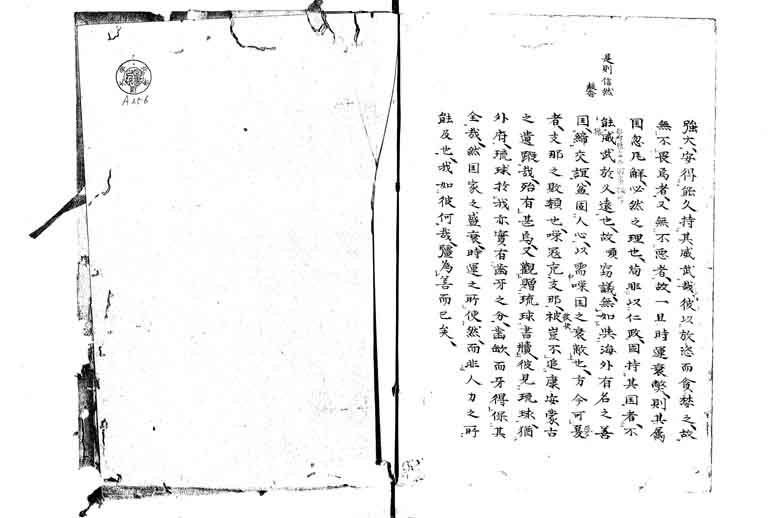 強大、安得能久持其威武哉、彼以放恣而貪婪之、故
無不畏焉者、又無不悪者、故一旦時運衰弊、則其属
国忽瓦解必然之理也、苟非以仁政固持其国者、不
能威武於久遠也、故嘗窃議、無如與海外有名之善
国、締交誼、益固人心、以需𠸄国之衰敝也、方今可憂
者、支那之敗頽也、𠸄冦克支那、彼豈不追康安蒙古
之遺蹤哉、殆有甚焉、又觀贈琉球書牘、彼見琉球、猶
外府、琉球於我亦實有歯牙之分、歯缺而牙得保其
全哉、然国家之盛衰、時運之所使然、而非人力之所
能及也、我如彼何哉、彊為善而已矣、
是則信然
A256